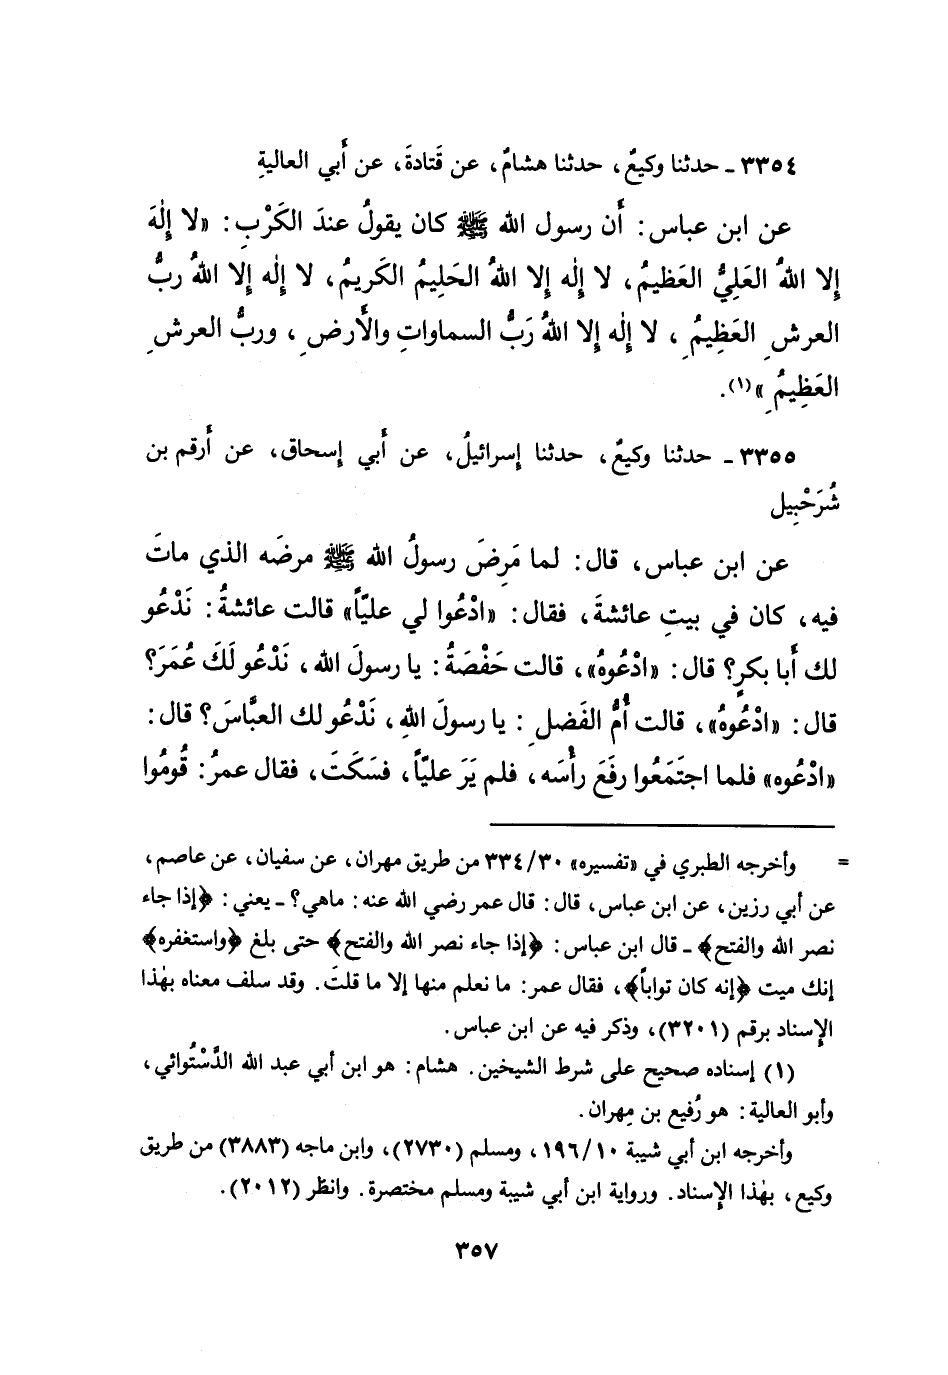 ٣٣٥٤ - حدثنا وكيعٌ، حدثنا هشامٌ، عن قَتادةَ، عن أَبي العاليةِ
عن ابن عباس: أَن رسول الله ﷺ كان يقولُ عندَ الكَرْبِ: «لا إِلٰهَ
إِلا اللهُ العَلِيُّ العَظيمُ، لا إِلٰه إِلا اللهُ الحَلِيمُ الكَريمُ، لا إِلٰه إِلا اللهُ ربُّ
العرشِ العَظِيمُِ، لا إِلٰه إِلا اللهُ رَبُّ السماواتِ والأَرضِ، وربُّ العرشِ
العَظِيمُِ»(١).
٣٣٥٥ - حدثنا وكيعٌ، حدثنا إِسرائيلُ، عن أَبي إِسحاق، عن أَرقم بن
شُرَحْبِيل
عن ابن عباس، قال: لما مَرِضَ رسولُ الله ﷺ مرضَه الذي ماتَ
فيه، كان في بيتِ عائشةَ، فقال: «ادْعُوا لي عليّاً» قالت عائشةُ: نَدْعُو
لك أَبا بكرٍ؟ قال: «ادْعُوهُ»، قالت حَفْصَةُ: يا رسولَ الله، نَدْعُو لَكَ عُمَرَ؟
قال: «ادْعُوهُ»، قالت أُمُّ الفَضلِ: يا رسولَ اللهِ، نَدْعُو لك العبَّاسَ؟ قال:
«ادْعُوه» فلما اجتَمَعُوا رفَعَ رأْسَه، فلم يَرَ عليّاً، فسَكَتَ، فقال عمرُ: قُومُوا
= وأخرجه الطبري في «تفسيره» ٣٣٤/٣٠ من طريق مهران، عن سفيان، عن عاصم،
عن أبي رزين، عن ابن عباس، قال: قال عمر رضي الله عنه: ماهي؟ - يعني: ﴿إذا جاء
نصر الله والفتح﴾ - قال ابن عباس: ﴿إذا جاء نصر الله والفتح﴾ حتى بلغ ﴿واستغفره﴾
إنك ميت ﴿إنه كان تواباً﴾، فقال عمر: ما نعلم منها إلا ما قلتَ. وقد سلف معناه بهٰذا
الإسناد برقم (٣٢٠١)، وذكر فيه عن ابن عباس.
(١) إسناده صحيح على شرط الشيخين. هشام: هو ابن أبي عبد الله الدَّسْتُوائي،
وأبو العالية: هو رُفيع بن مِهران.
وأخرجه ابن أبي شيبة ١٩٦/١٠، ومسلم (٢٧٣٠)، وابن ماجه (٣٨٨٣) من طريق
وكيع، بهٰذا الإسناد. ورواية ابن أبي شيبة ومسلم مختصرة. وانظر (٢٠١٢).
٣٥٧